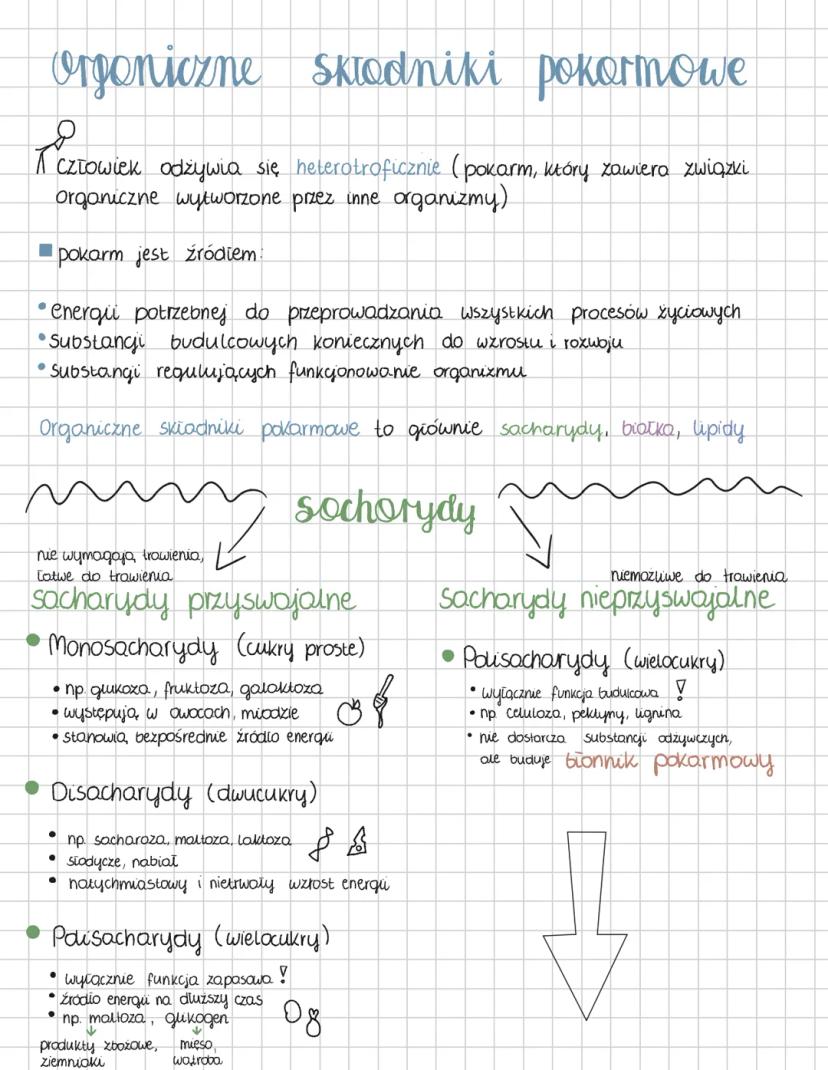 Organiczne składniki pokarmowe
człowiek odżywia się heterotroficznie (pokarm, który zawiera związki
organiczne wytworzone przez inne organizmy)
pokarm jest źródłem:
• energii potrzebnej do przeprowadzania wszystkich procesów życiowych
• substancji budulcowych koniecznych do wzrostu i rozwoju
• substancji regulujących funkcjonowanie organizmu
Organiczne składniki pokarmowe to głównie sacharydy, białka, lipidy
sacharydy
nie wymagają trawienia,
łatwe do trawienia
sacharydy przyswajalne
• Monosacharydy (cukry proste)
• np. glukoza, fruktoza, galaktoza
• występują w owocach, miodzie
• stanowią bezpośrednie źródło energii
• Disacharydy (dwucukry)
• np. sacharoza, maltoza, laktoza
• słodycze, nabiał
• natychmiastowy i nietrwały wzrost energii
• Polisacharydy (wielocukry)
• wyłącznie funkcja zapasowa !
• źródło energii na dłuższy czas
• np. maltoza, glikogen
produkty zbożowe, mięso,
ziemniaki wątroba
niemożliwe do trawienia
sacharydy nieprzyswajalne
• Polisacharydy (wielocukry)
• wyłącznie funkcja budulcowa !
• np. celuloza, pektyny, lignina
• nie dostarcza substancji odżywczych,
ale buduje błonnik pokarmowy